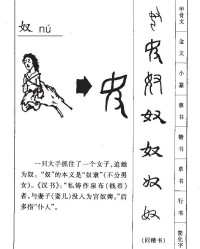 奴 nú
一只大手抓住了一个女子，迫她
为奴。“奴”的本义是“奴隶”（不分男
女）。《汉书》：“私铸作泉布（钱币）
者，与妻子（妻儿）没入为官奴婢。”后
多指“仆人”。
甲骨文
金文
小篆
隶书
楷书
草书
行书
（同楷书）
简化字
奴
奴
奴
奴